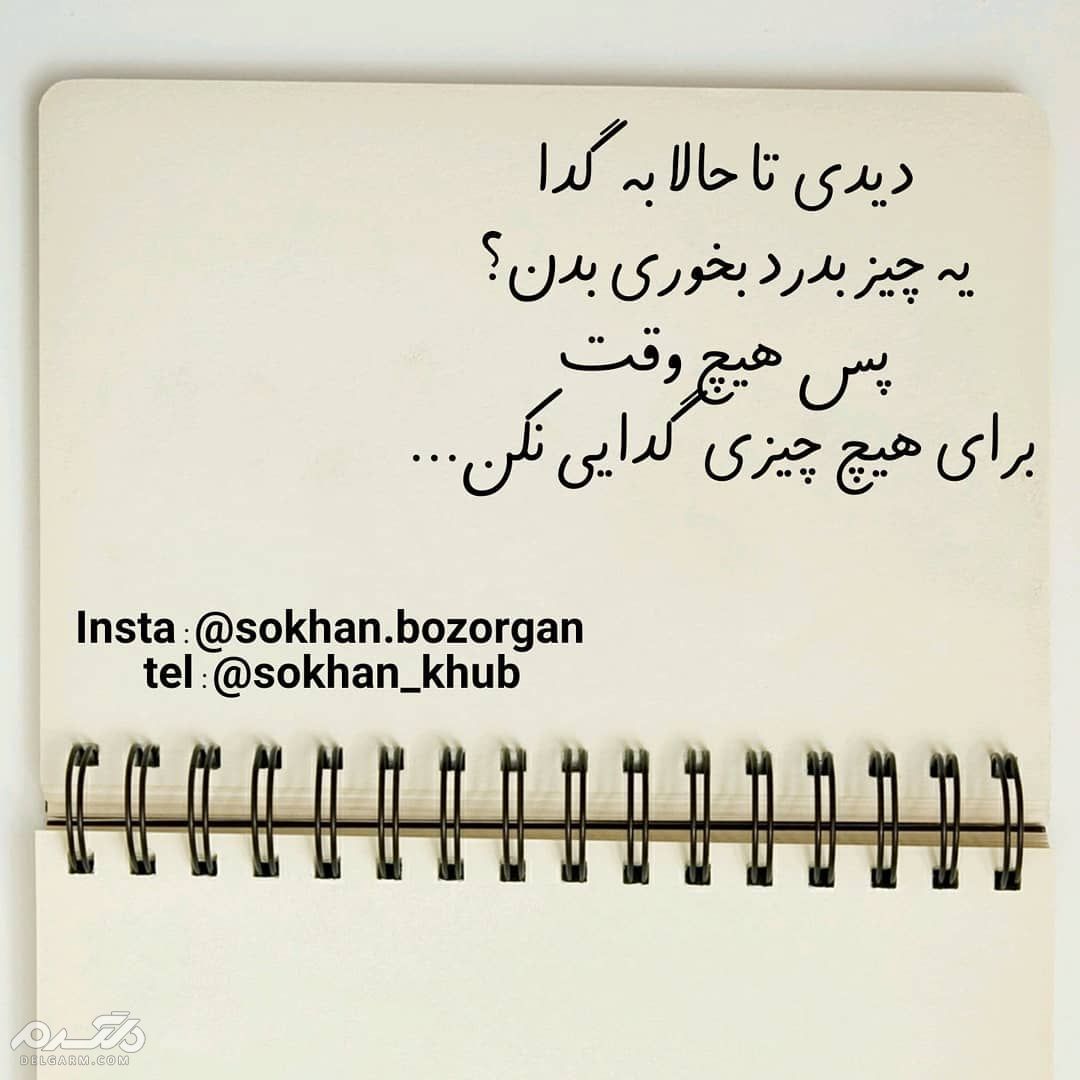 دیدی تا حالا به گدا
یه چیز بدرد بخوری بدن؟
پس هیچ وقت
برای هیچ چیزی گدایی نکن...
Insta : @sokhan.bozorgan
tel : @sokhan_khub
دلگرم
DELGARM.COM